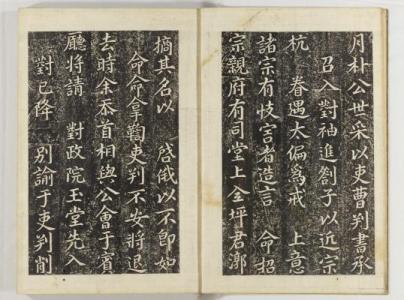 月朴公世采以吏曹判書承
召入對袖進劄子以近宗
杭 眷遇太偏爲戒 上意
諸宗有忮害者造言 命招
宗親府有司堂上金坪君漷
摘其名以 啓俄以不卽如
命命拿鞫吏判不安將退
去時余忝首相與公會于賓
廳將請 對政院玉堂先入
對已降 別諭于吏判削